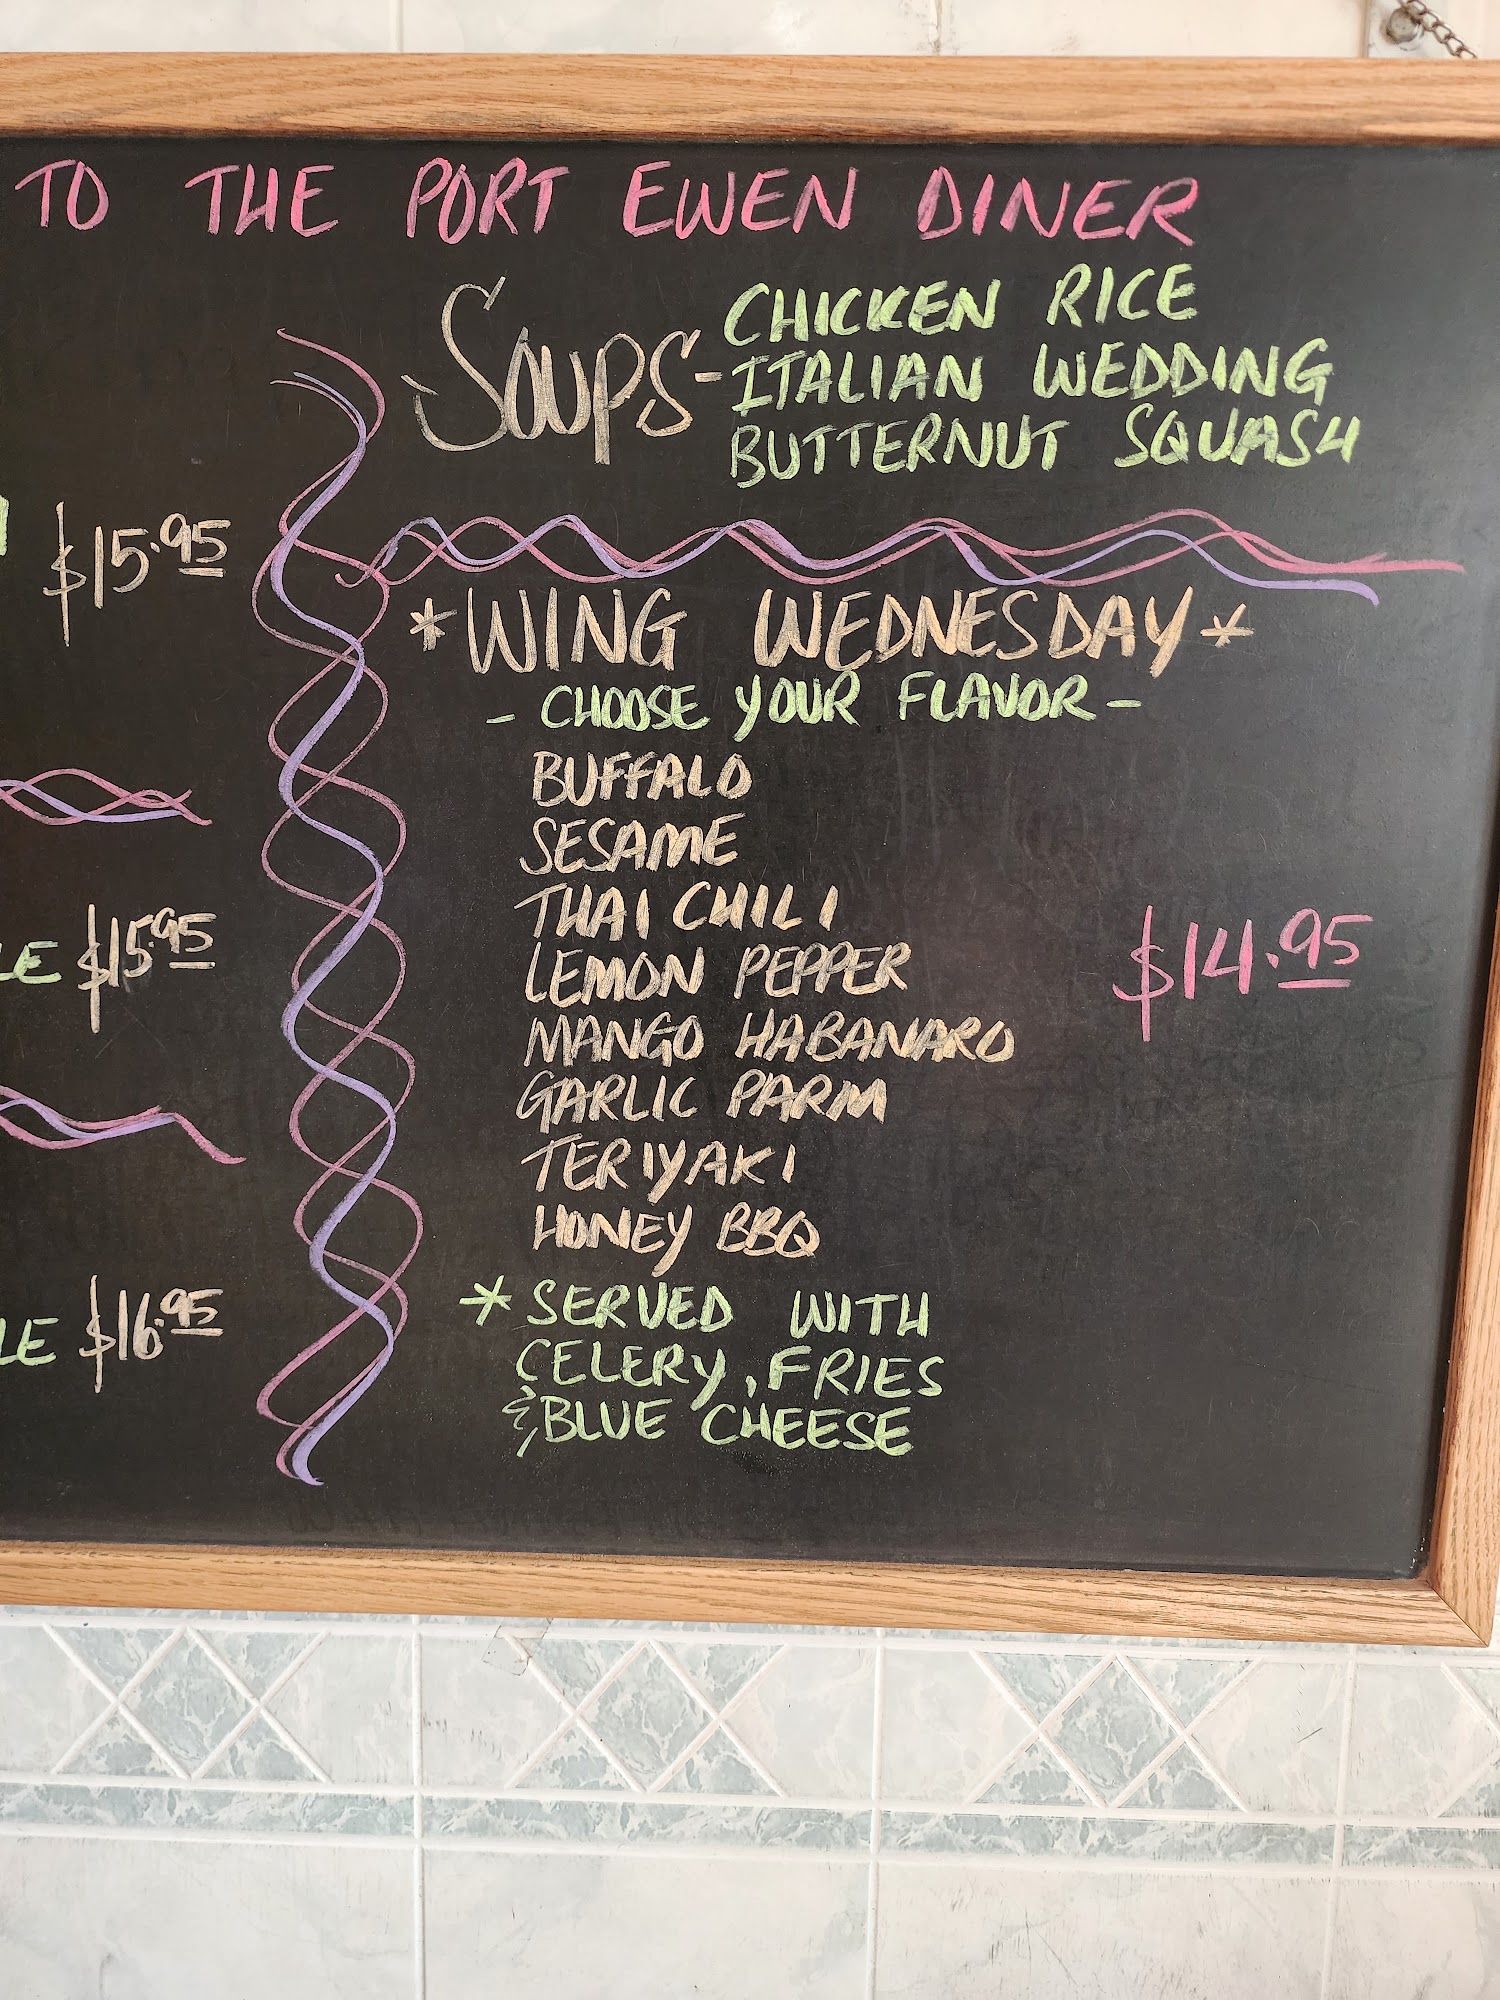 TO THE PORT EWEN DINER
$15.95
LE $15.95
LE $16.95
SOUPS - CHICKEN RICE
ITALIAN WEDDING
BUTTERNUT SQUASH
*WING WEDNESDAY*
- CHOOSE YOUR FLAVOR -
BUFFALO
SESAME
THAI CHILI
LEMON PEPPER
MANGO HABANARO
GARLIC PARM
TERIYAKI
HONEY BBQ
$14.95
* SERVED WITH
CELERY, FRIES
& BLUE CHEESE